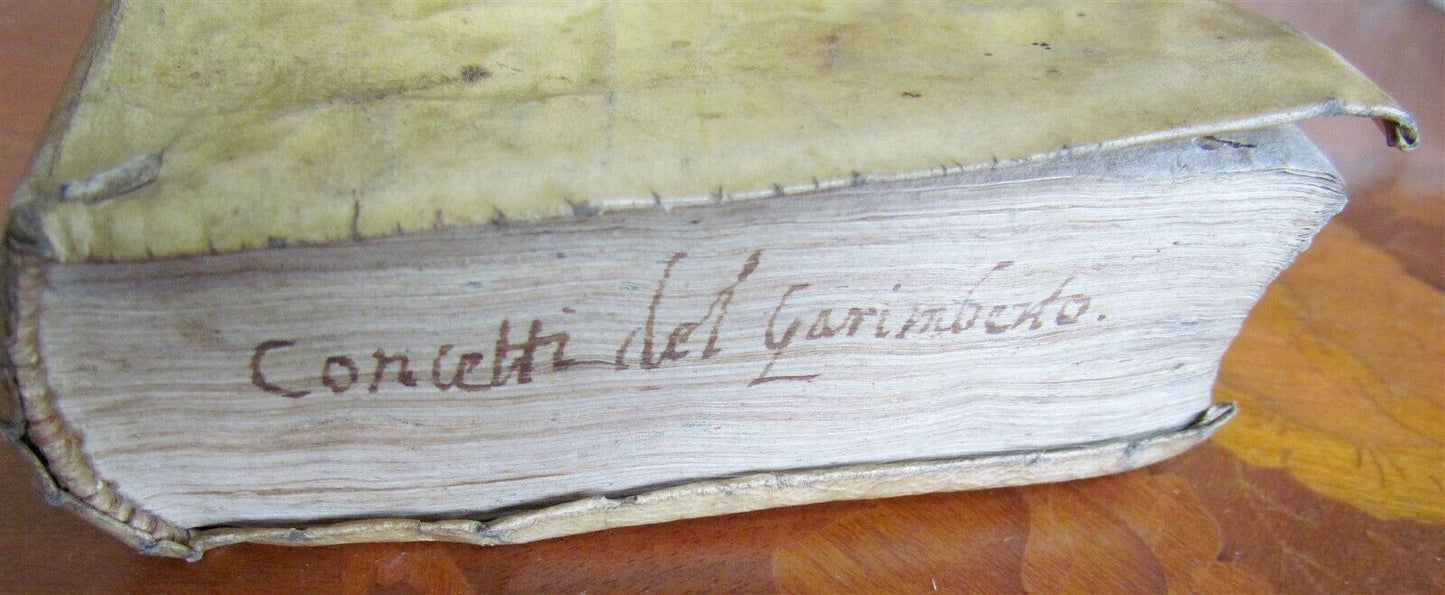 Concetti del Garimberto.